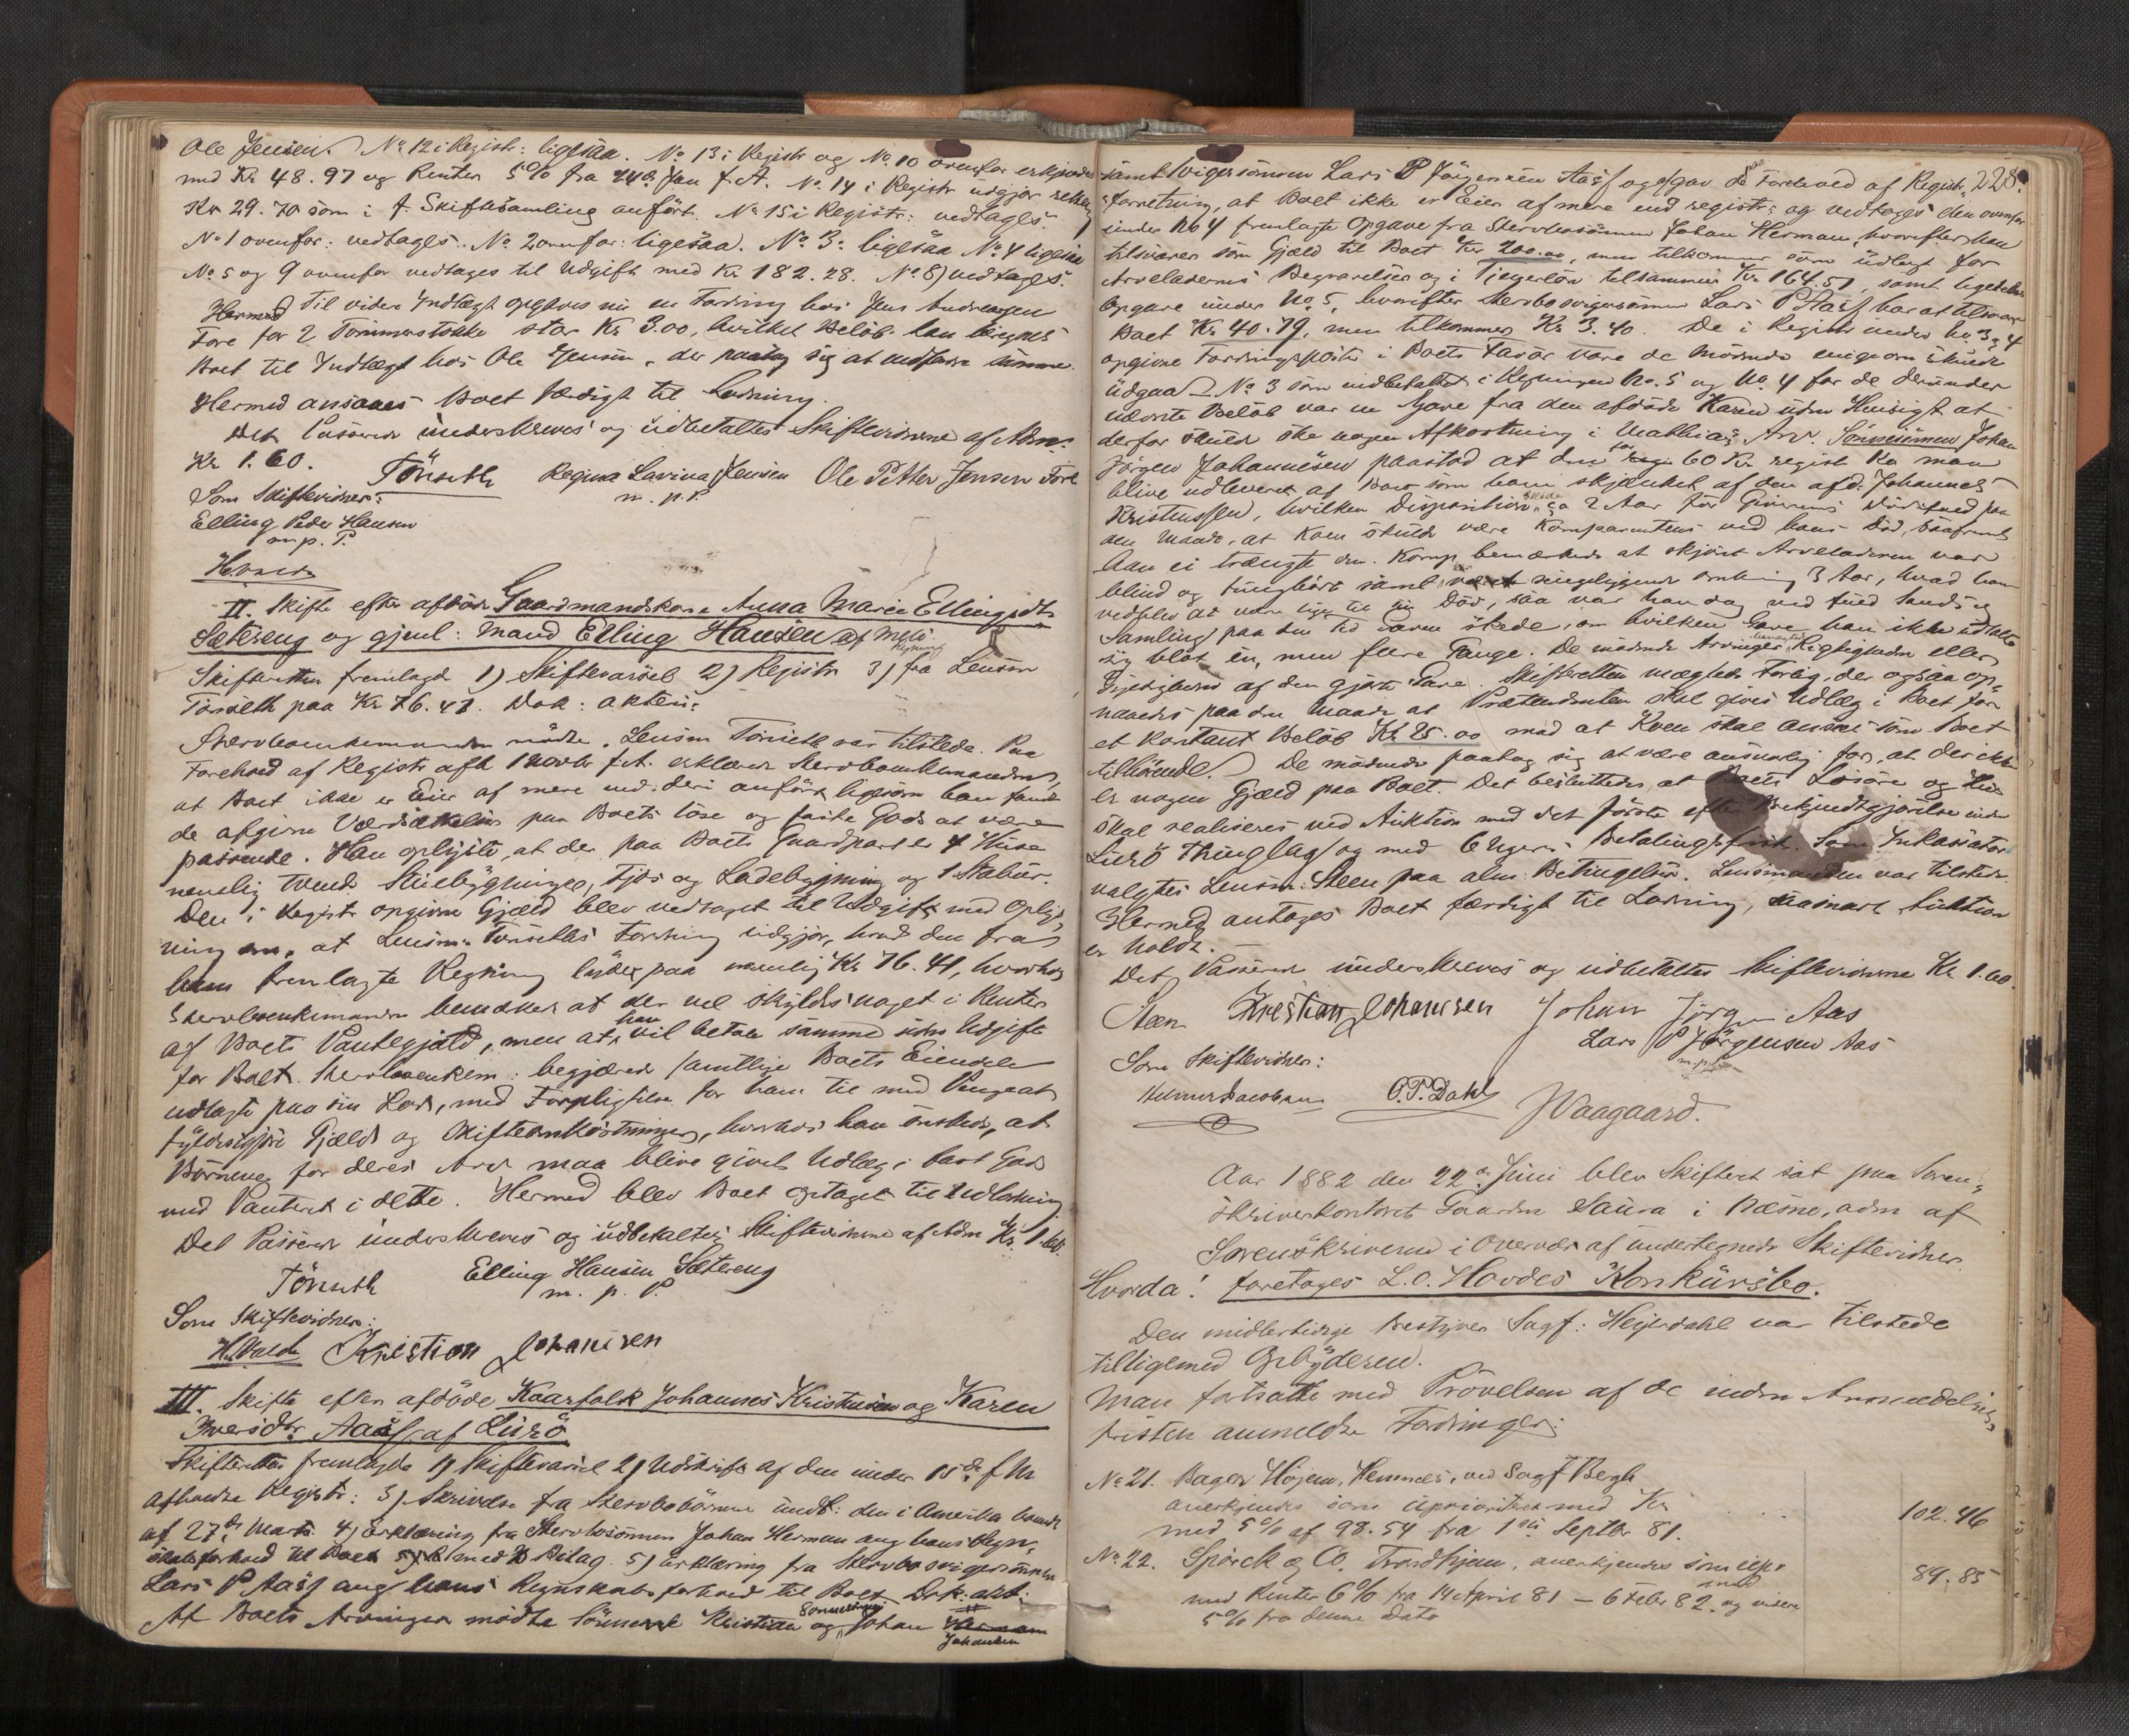 Ole Jensen. No 12 i Registr: ligesaa. No 13 i Registr og No. 10 ovenfor erkjendes
med Kr 48.97 og Renter 5% fra 24de Jan f. A. No. 14 i Registr udgjør rettelig
Kr 29.70 som i f. Skiftesamling anført. No 15 i Registr: vedtages.
No 1 ovenfor: vedtages. No. 2 ovenfor: ligesaa. No. 3: ligesaa No. 4 ligesaa
No. 5 og 9 ovenfor vedtages til Udgift med Kr 182.28. No. 8) vedtages.
Hermed Til videre Indtægt opgaves nu en Fordring hos Jens Andreassen
Fore for 2 Tømmerstokke stor Kr 3.00, hvilket Beløb kan beregnes
Boet til Indtægt hos Ole Jensen, der paatog sig at indfordre samme.
Hermed ansaaes Boet færdigt til Lodning.
Det Passerede underskreves og udbetaltes Skiftevidnerne af Adm:
Kr 1.60.
Tönseth Regina Lavina Jensen Ole Petter Jensen Fore
m. p. P.
Som Skiftevidner:
Elling Peder Hansen
m. p. P.
HVold
II. Skifte efter afdøde Gaardmandskone Anna Marie Ellingsdtr
Sætereng og gjenl: Mand Elling Hansen af Melö.
Skifteretten fremlagde 1) Skiftevarsel 2) Registr 3) Regning fra Lensm
Tönseth paa Kr 76.41. Dok: akter:
Stervboenkemanden mødte. Lensm Tönseth var tilstede. Paa
Forehold af Registr afh 1 Novbr f. A. erklærede Stervboenkemanden,
at Boet ikke er Eier af mere end deri anført ligesom han fandt
de afgivne Værdsættelser paa Boets løse og faste Gods at være
passende. Han oplyste, at der paa Boets Gaardpart er 4 Huse
nemlig tvende Stuebygninger, Fjøs og Ladebygning og 1 Stabur.
Den i Registr opgivne Gjæld blev vedtaget til Udgift med Oplys-
ning om, at Lensm: Tönseths Fordring udgjør, hvad den fra
ham fremlagte Regning lyder paa nemlig Kr 76.41, hvorhos
Stervboenkemanden bemærker at der vel skyldes noget i Renter
af Boets Pantegjæld, men at han vil betale samme uden Udgift
for Boet. Stervboenkem: begjærede samtlige Boets Eiendele
udlagte paa sin Lod, med Forpligtelse for ham til med Penge at
fyldestgjøre Gjæld og Skifteomkostninger, hvorhos han ønskede, at
Børnene for deres Arv maa blive givet Udlæg i fast Gods
med Panteret i dette. Hermed blev Boet optaget til Udlodning
Det Passerede underskreves og udbetaltes Skiftevidnerne af Adm Kr. 1.60.
Tönseth Elling Hansen Sætereng
m. p. P.
Som Skiftevidner:
HVold Kristian Johansen
III. Skifte efter afdøde Kaarfolk Johannes Kristensen og Karen
Iversdtr Aas af Lurö
Skifteretten fremlagde 1) Skiftevarsel 2) Udskrift af den under 15de f M
afholdte Registr: 3) Skrivelse fra Stervbobørnene undt: den i Amerika boende
af 27de Marts 4) Erklæring fra Stervbosønnen Johan Herman ang hans Regn-
skabsforhold til Boet med Bilag. 5) Erklæring fra Stervbosvigersønnen
Lars P Aas ang hans Regnskabsforhold til Boet. Dok. akt:
Af Boets Arvinger mødte Sønnen Kristian og Sønnesønnen Johan Johansen
228.
samt Svigersønnen Lars P Jörgensen Aas og opgav de paa Forehold af Registr:
Forretning, at Boet ikke er Eier af mere end registr: og vedtages den ovenfor
under No 4 fremlagte Opgave fra Stervbosønnen Johan Herman, hvorefter han
tilsvarer som Gjæld til Boet Kr 200.00, men tilkommer som Udlagt for
Arveladernes Begravelser og i Tjenerløn tilsammen Kr 164.51, samt ligeledes
Opgave under No. 5, hvorefter Stervbosvigersønnen Lars P Aas har at tilsvare
Boet Kr 40.79, men tilkommer Kr 3.40. De i Registr under No. 3 & 4
opgivne Fordringsposter i Boets Favør vare de Mødende enige om skulde
udgaa – No. 3 som indbefattet i Regningen No. 5 og No. 4 for de derunder
nævnte Beløb var en Gave fra den afdøde Karen uden Hensigt at
derfor skulde ske nogen Afkortning i Mathias Arv. Sønnesønnen Johan
Jörgen Johannesen paastod at den for 60 Kr registr Ko maa
blive udleveret af Boet som ham skjænket af den afd: Johannes
Kristensen, hvilken Disposition skede ca 2 Aar før Giverens Død skeed paa
den Maade, at Koen skulde være Komparentens ved hans Død, saafremt
han ei trængte den. Komp. bemærkede at skjønt Arveladeren var
blind og tunghørt samt sengeliggende omkring 3 Aar, hvad han
vedblev at være lige til sin Død, saa var han dog ved fuld Sands og
Samling paa den Tid Gaven skede, om hvilken Gave han ikke udtalte
sig blot en, men flere Gange. De mødende Arvinger benægtede Rigtigheden eller
Gyldigheden af den gjorte Gave. Skifteretten mæglede Forlig, der ogsaa op-
naaedes paa den Maade at Prætendenten skal gives Udlæg i Boet for
et Kontant Beløb Kr 25.00 mod at Koen skal ansees som Boet
tilhørende. De mødende paatog sig at være ansvarlig for, at der ikke
er nogen Gjæld paa Boet. Det besluttedes, at Boets Løsøre og Huse
skal realiseres ved Auktion med det første efter Bekjendtgjørelse inden
Lurö Thinglag og med 6 Ugers Betalingsfrist. Som Inkassator
valgtes Lensm: Steen paa alm Betingelser. Lensmanden var tilstede.
Hermed antages Boet færdigt til Lodning, saasnart Auktion
er holdt. –
Det Passerede underskreves og udbetaltes Skiftevidnerne Kr 1.60.
Steen Kristian Johansen Johan Jörgen Aas
Lars P Jörgensen Aas
m.p.P.
Som Skiftevidner:
Helmer Jacobsen O. P. Dahl JWaagaard.
Aar 1882 den 22de Juni blev Skifteret sat paa Soren-
skriverkontoret Gaarden Saura i Næsne, adm af
Sorenskriveren i Overvær af undertegnede Skiftevidner.
Hvorda! foretoges L. O. Hovdes Konkursbo.
Den midlertidige Bestyrer Sagf: Heijerdahl var tilstede
tilligemed Opbyderen.
Man fortsatte med Prøvelsen af de inden Anmeldelses-
fristen anmeldte Fordringer:
No 21. Bager Höjem, Hemnes, ved Sagf Bergh
anerkjendes som uprioriteret med Kr . . . 102.46
med 5% af 98.54 fra 1ste Septbr 81.
No 22. Spörck & Co. Trondhjem, anerkjendes som upr 89.85
med Renter 6% fra 14 April 81 – 6 Febr 82 og videre med
5% fra denne Dato